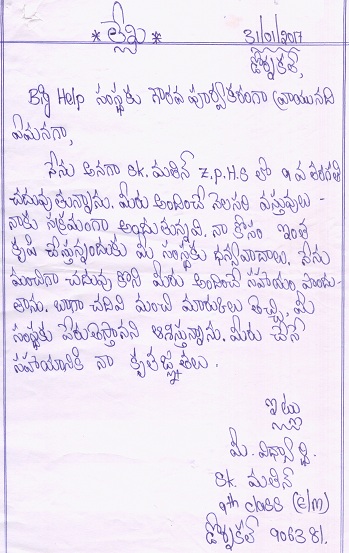 * లేఖ *
31/01/2017
డోర్నకల్,
Big Help సంస్థకు గౌరవ పూర్వకంగా వ్రాయునది
ఏమనగా,
నేను అనగా Sk. మతీన్ Z.P.H.S లో 9 వ తరగతి
చదువుతున్నాను. మీరు అందించే నెలసరి వస్తువులు -
నాకు సక్రమంగా అందుతున్నవి. నా కోసం ఇంత
కృషి చేస్తున్నందుకు మీ సంస్థకు ధన్యవాదాలు. నేను
మంచిగా చదువు కొని మీరు అందించే సహాయం పొందు-
తాను. బాగా చదివి మంచి మార్కులు తెచ్చి, మీ
సంస్థకు పేరుతెస్తానని ఆశిస్తున్నాను. మీరు చేసే
సహాయానికి నా కృతజ్ఞతలు.
ఇట్లు
మీ విధ్యార్థి.
Sk. మతీన్
9th class (E/M)
డోర్నకల్ 506381.